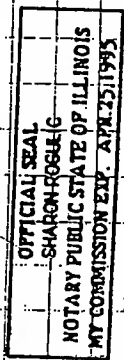 OFFICIAL SEAL
SHARON ROGULIC
NOTARY PUBLIC STATE OF ILLINOIS
MY COMMISSION EXP. APR. 25, 1995